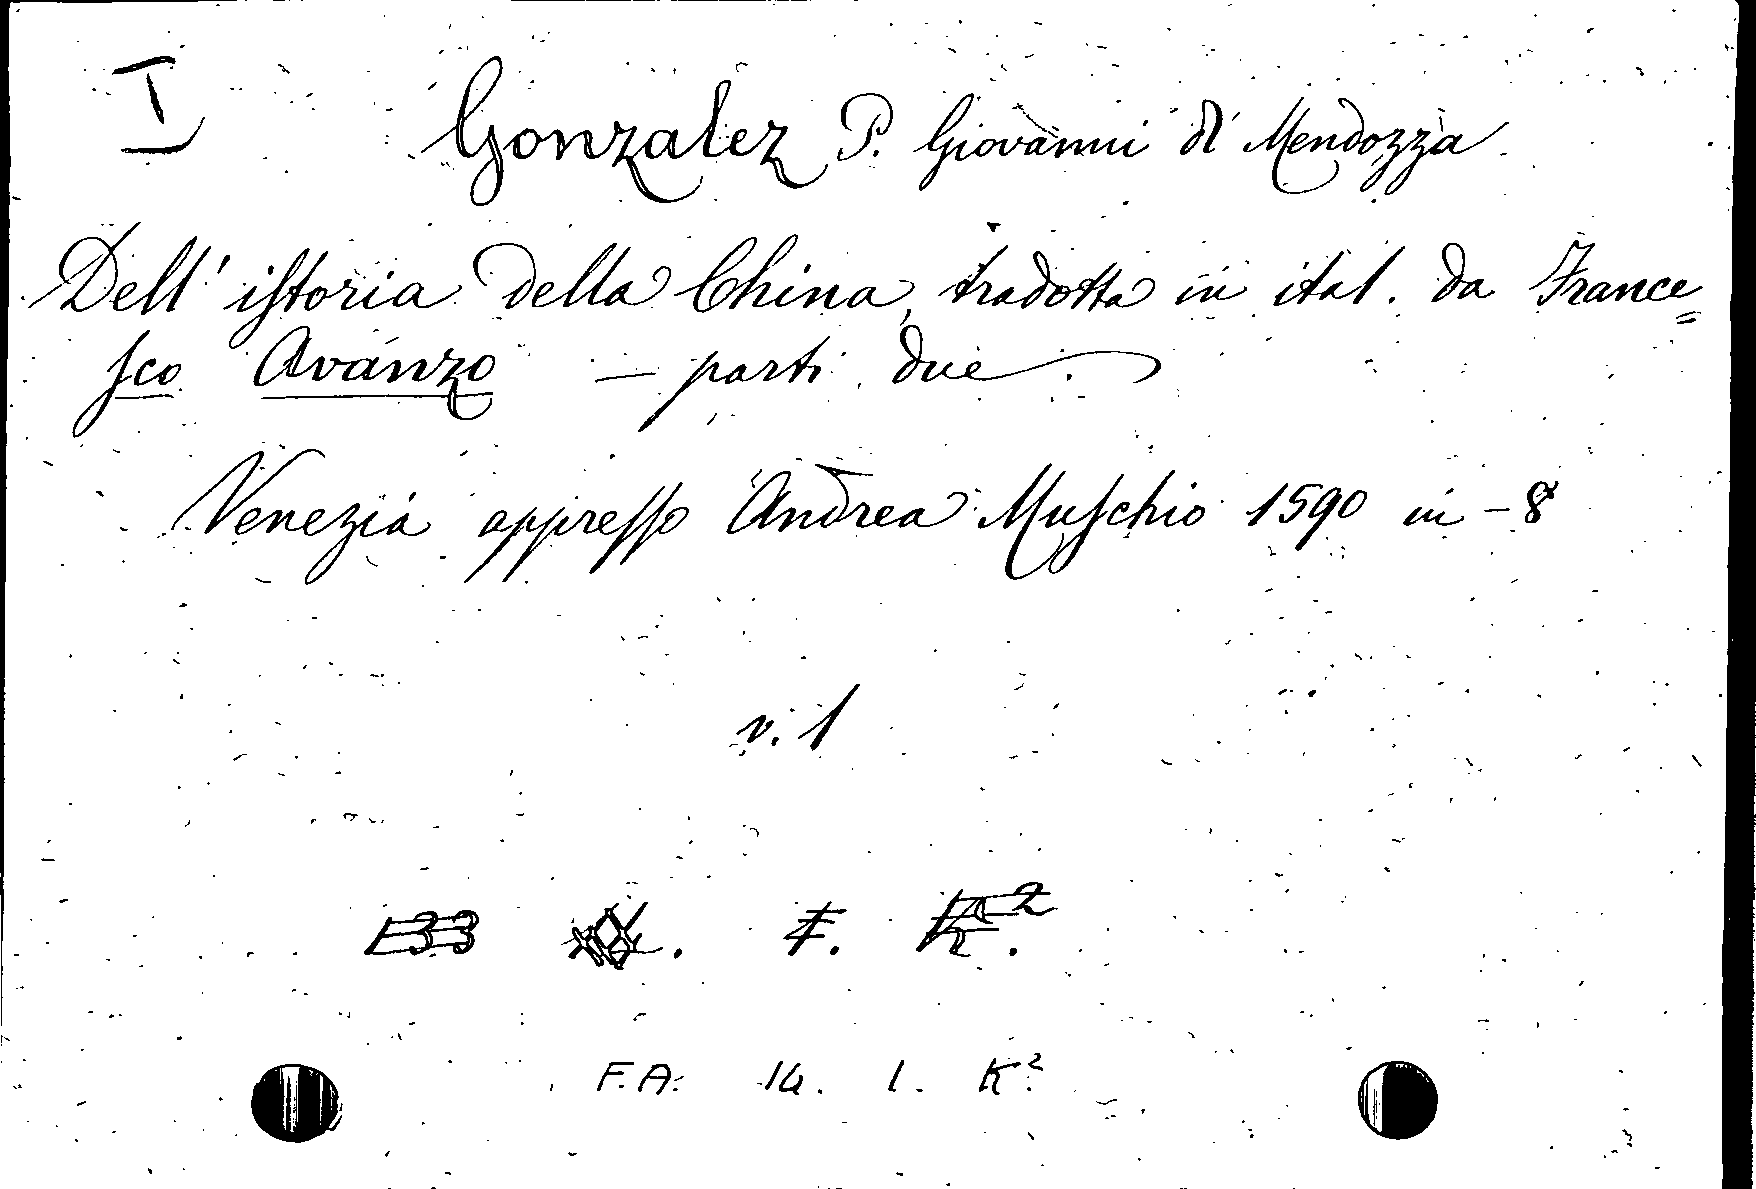 I Gonzalez P. Giovanni di Mendozza
Dell' iſtoria della China, tradotta in ital. da France=
ſco Avanzo — parti due
Venezia appreſſo Andrea Muſchio 1590 in-8
v. 1
F.A. 14. 1. K²